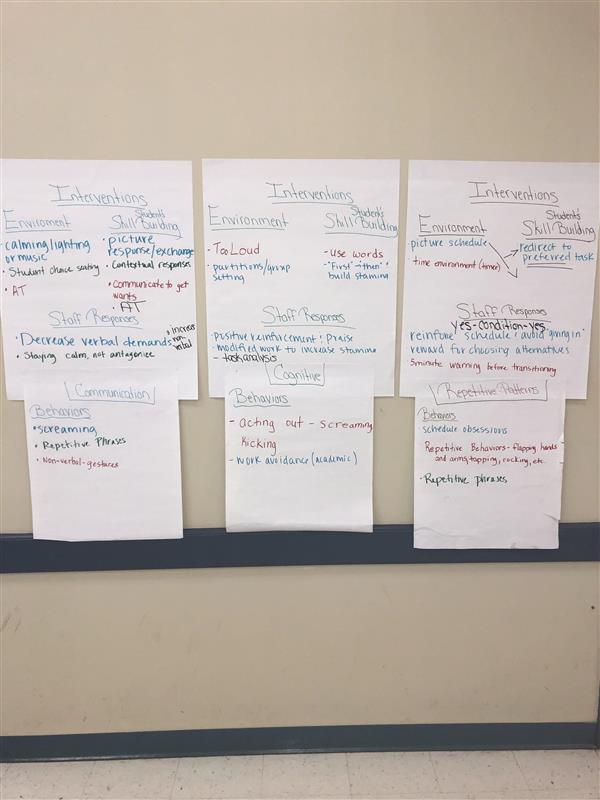 Interventions
Enviroment
calming/lighting
or music
• Student choice seating
• AT
Student's
Skill Building
• picture
response/exchange
• Contextual responses
• Communicate to get
wants
• AT
Staff Responses
• Decrease verbal demands
• increase
non-
verbal
• Staying calm, not antagonize
Communication
Behaviors
• screaming
• Repetitive Phrases
• Non-verbal-gestures
Interventions
Environment
- Too Loud
- partitions/group
setting
Student's
Skill Building
- use words
- "First"-"then"
build stamina
Staff Responses
- positive reinforcement & praise
- modified work to increase stamina
- task analysis
Cognitive
Behaviors
- acting out - screaming
kicking
- work avoidance (academic)
Interventions
Environment
picture schedule
• time environment (timer)
Student's
Skill Building
• redirect to
preferred task
Staff Responses
yes-condition-yes
reinforce schedule & avoid "giving in"
reward for choosing alternatives
5 minute warning before transitioning
Repetitive Patterns
Behaviors
schedule obsessions
Repetitive Behaviors - flapping hands
and arms, tapping, rocking, etc.
• Repetitive phrases